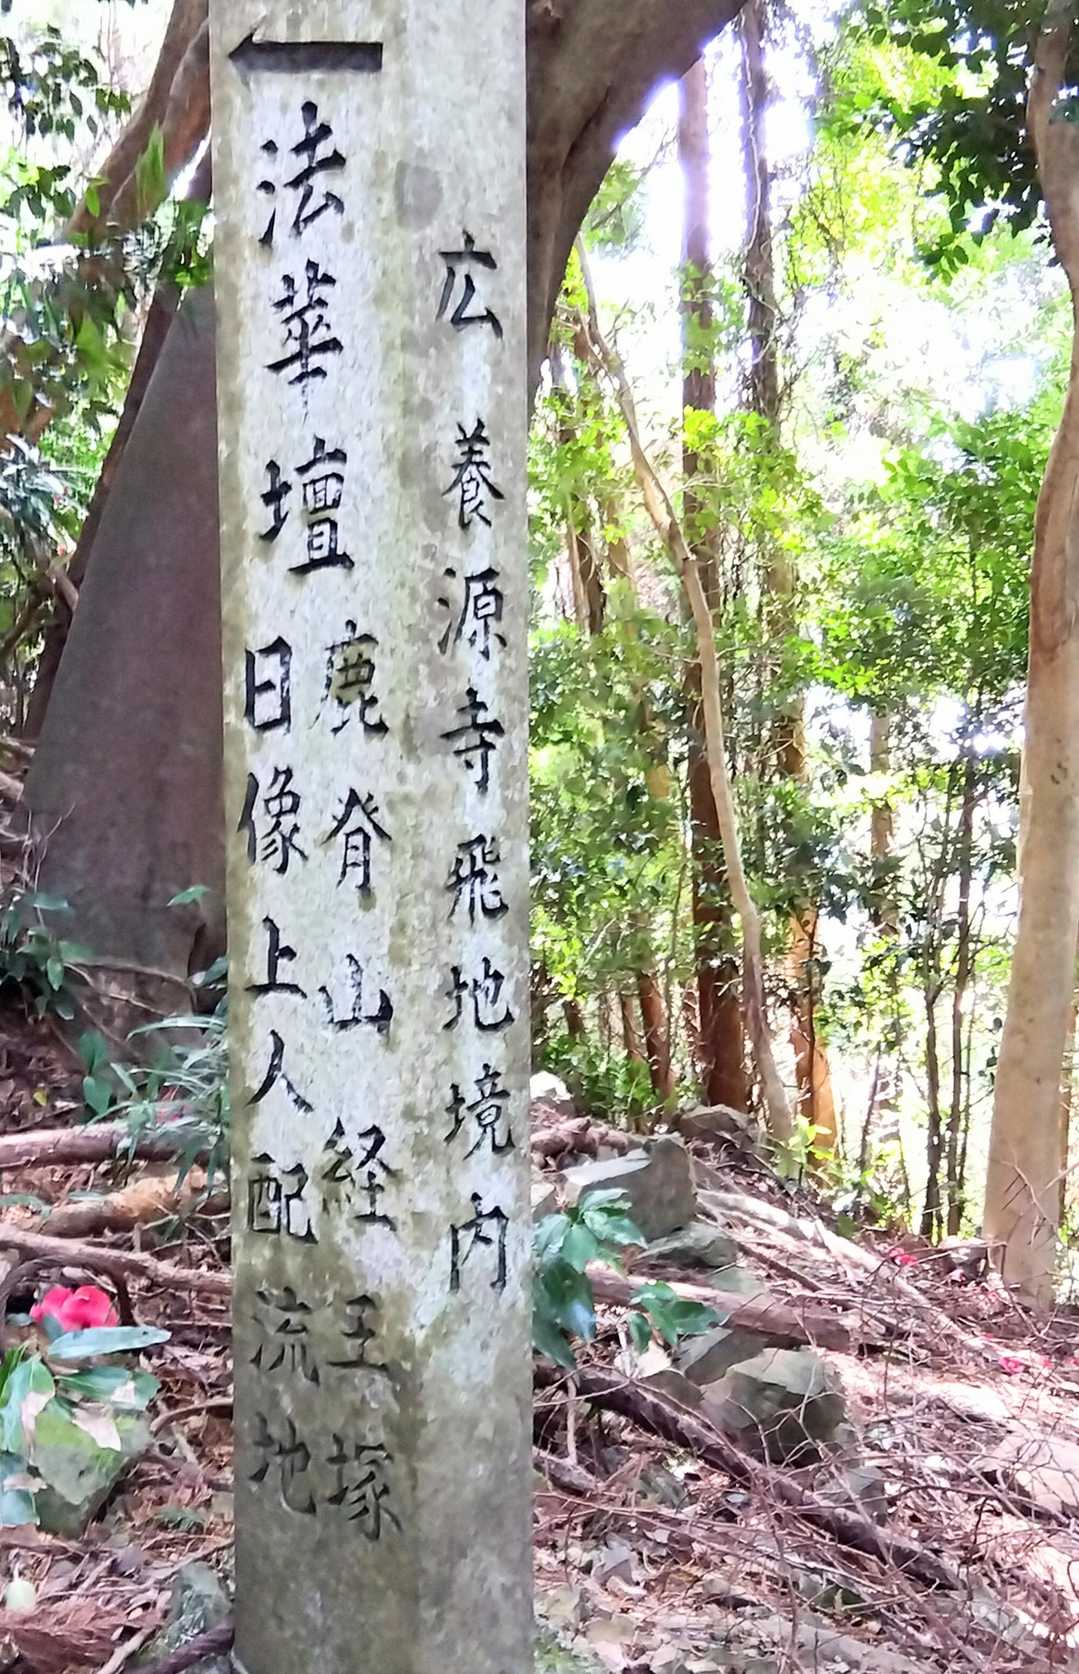 広養源寺飛地境内
←法華壇
鹿脊山経王塚
日像上人配流地